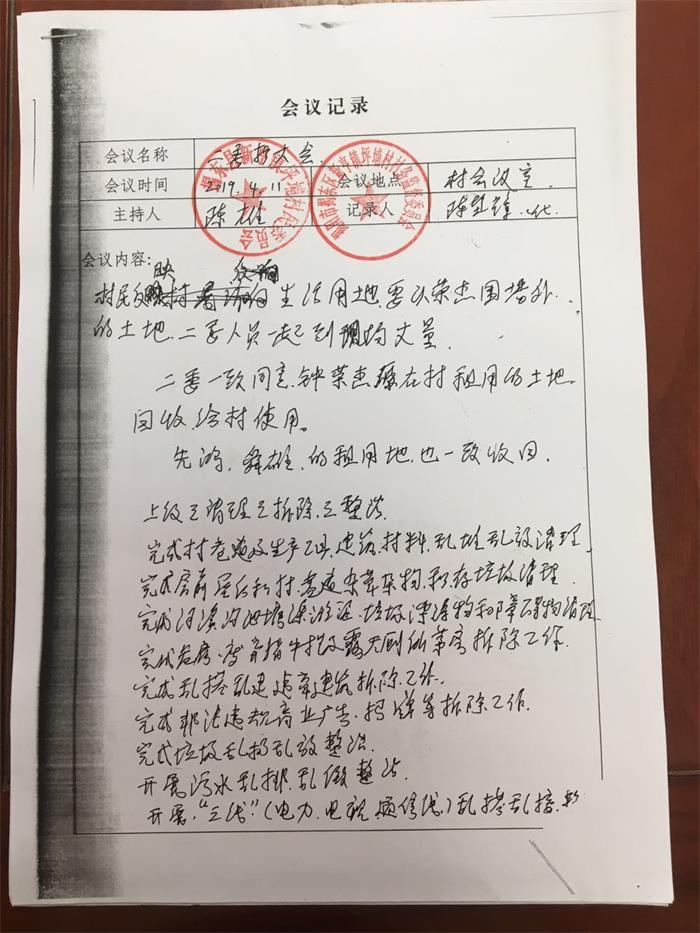 会议记录
会议名称 二委扩大会
会议时间 2019.4.11 会议地点 村会议室
主持人 陈雄 记录人 陈 代
会议内容：映 反响
村民反 生活用地，要以荣杰围墙外
的土地，二委人员一起到现场丈量。
二委一致同意，钟荣杰 在村租用的土地
回收给村使用。
先鸿、舜雄，的租用地，也一致收回。
上级三清理三拆除三整治
完成村巷道及生产工具，建筑材料，乱堆乱放清理
完成房前屋后和村巷道杂草杂物，积存垃圾清理
完成河溪沟池塘渠淤泥，垃圾漂浮物和障碍物清理
完成危房，废弃猪牛栏及露天厕所茅房拆除工作
完成乱搭乱建违章建筑拆除工作
完成非法违规商业广告，招牌等拆除工作
完成垃圾乱扔乱放整治
开展污水乱排，乱 整治
开展，“三线”（电力，电视 通信线）乱搭乱接，